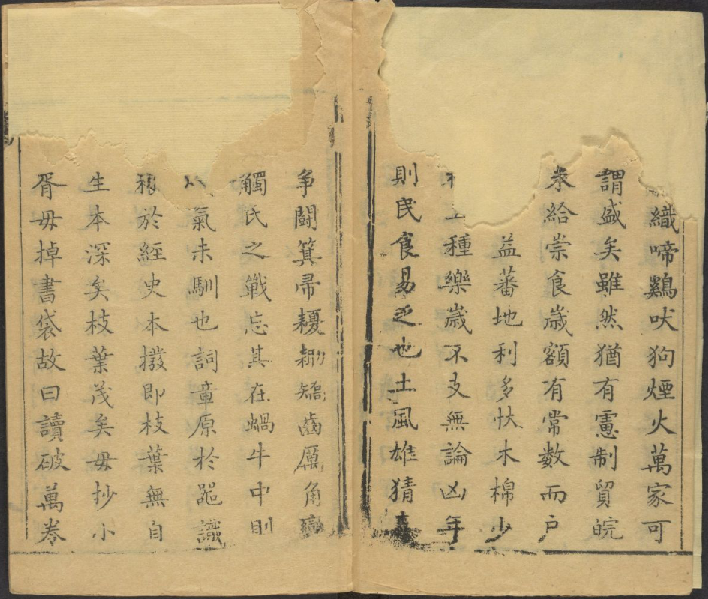 織啼鷄吠狗煙火萬家可
謂盛矣雖然猶有憲制貿皖
券給崇食歲額有常數而戶
益蕃地利多忕木棉少
種樂歲不支無論凶年
則民食易乏也土風雄猜
爭鬪箕帚耰鋤矯齒厲角蠻
觸氏之戰忘其在蝸牛中則
氣未馴也詞章原於器識
於經史本撥即枝葉無自
生本深矣枝葉茂矣毋抄小
胥毋掉書袋故曰讀破萬卷